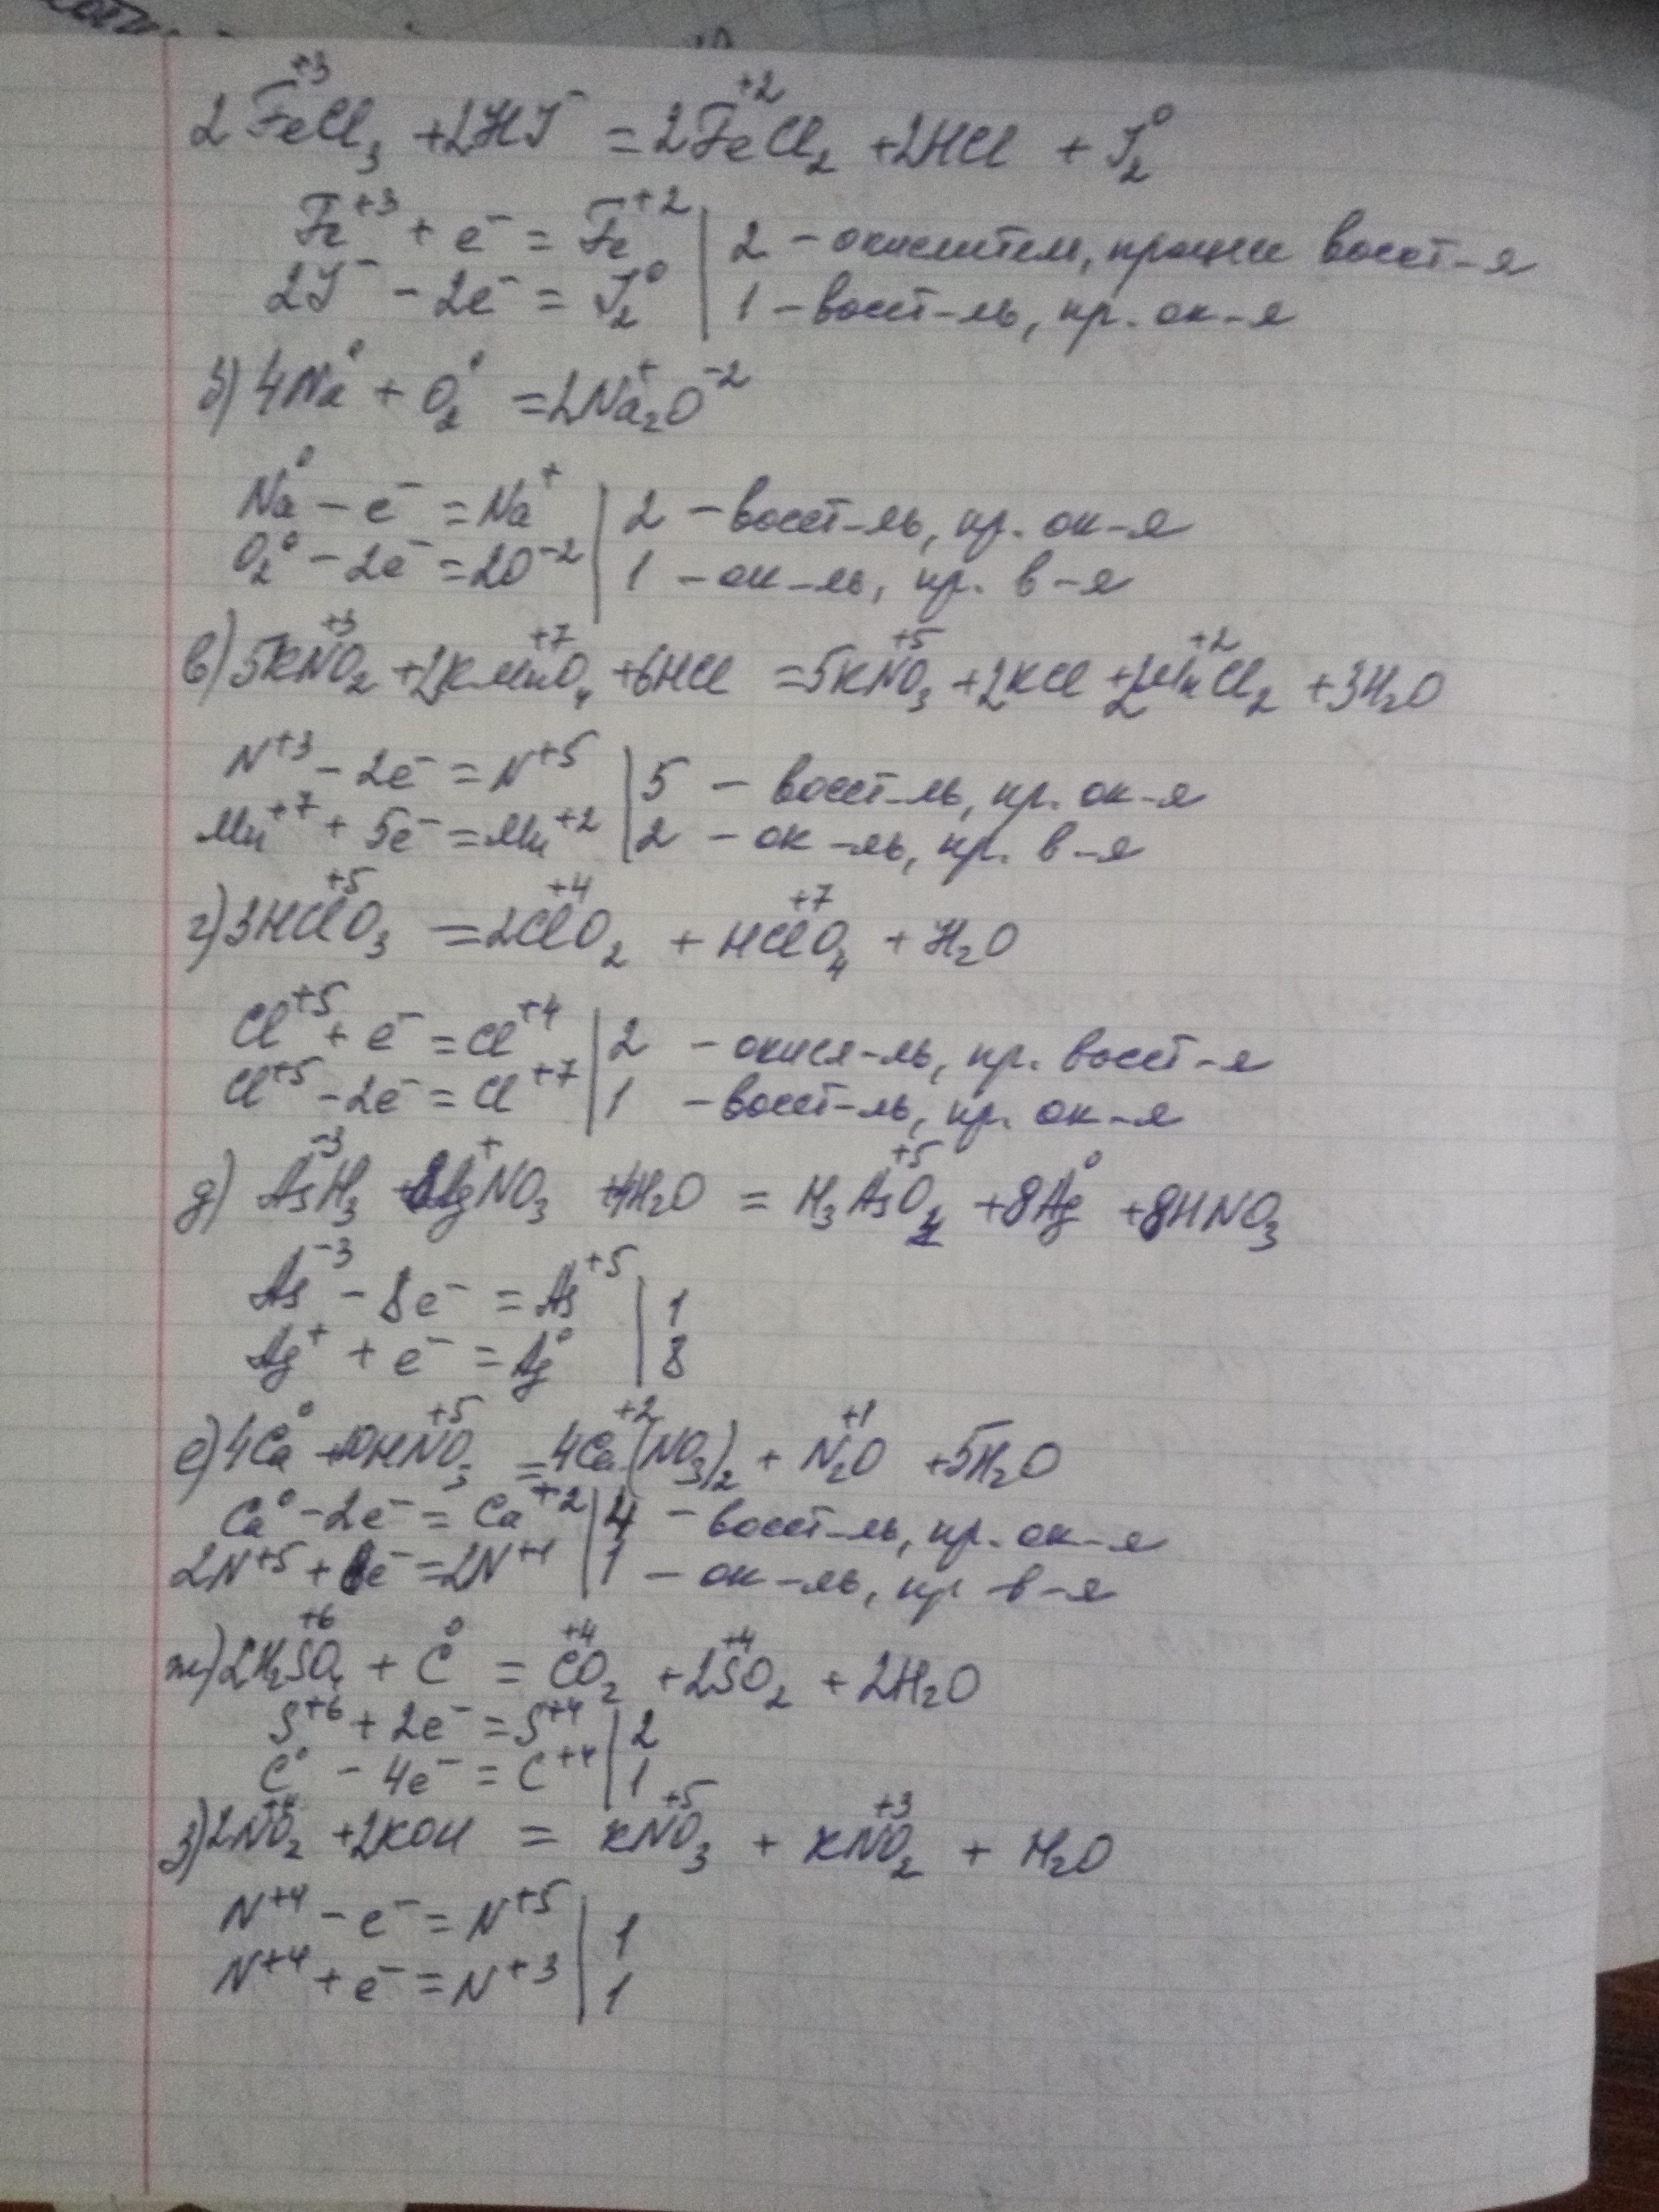 2Fe⁺³Cl₃ + 2HJ⁻ = 2Fe⁺²Cl₂ + 2HCl + J₂⁰
Fe⁺³ + e⁻ = Fe⁺² | 2 – окислитель, процесс восст-я
2J⁻ – 2e⁻ = J₂⁰ | 1 – восст-ль, пр. ок-я
б) 4Na⁰ + O₂⁰ = 2Na₂⁺O⁻²
Na⁰ – e⁻ = Na⁺ | 2 – восст-ль, пр. ок-я
O₂⁰ – 2e⁻ = 2O⁻² | 1 – ок-ль, пр. в-я
в) 5KN⁺³O₂ + 2KMn⁺⁷O₄ + 6HCl = 5KN⁺⁵O₃ + 2KCl + 2Mn⁺²Cl₂ + 3H₂O
N⁺³ – 2e⁻ = N⁺⁵ | 5 – восст-ль, пр. ок-я
Mn⁺⁷ + 5e⁻ = Mn⁺² | 2 – ок-ль, пр. в-я
г) 3HCl⁺⁵O₃ = 2Cl⁺⁴O₂ + HCl⁺⁷O₄ + H₂O
Cl⁺⁵ + e⁻ = Cl⁺⁴ | 2 – окисл-ль, пр. восст-я
Cl⁺⁵ – 2e⁻ = Cl⁺⁷ | 1 – восст-ль, пр. ок-я
д) As⁻³H₃ + 8Ag⁺NO₃ + 4H₂O = H₃As⁺⁵O₄ + 8Ag⁰ + 8HNO₃
As⁻³ – 8e⁻ = As⁺⁵ | 1
Ag⁺ + e⁻ = Ag⁰ | 8
е) 4Ca⁰ + 10HN⁺⁵O₃ = 4Ca⁺²(NO₃)₂ + N₂⁺¹O + 5H₂O
Ca⁰ – 2e⁻ = Ca⁺² | 4 – восст-ль, пр. ок-я
2N⁺⁵ + 8e⁻ = 2N⁺¹ | 1 – ок-ль, пр в-я
ж) 2H₂S⁺⁶O₄ + C⁰ = C⁺⁴O₂ + 2S⁺⁴O₂ + 2H₂O
S⁺⁶ + 2e⁻ = S⁺⁴ | 2
C⁰ – 4e⁻ = C⁺⁴ | 1
з) 2N⁺⁴O₂ + 2KOH = KN⁺⁵O₃ + KN⁺³O₂ + H₂O
N⁺⁴ – e⁻ = N⁺⁵ | 1
N⁺⁴ + e⁻ = N⁺³ | 1